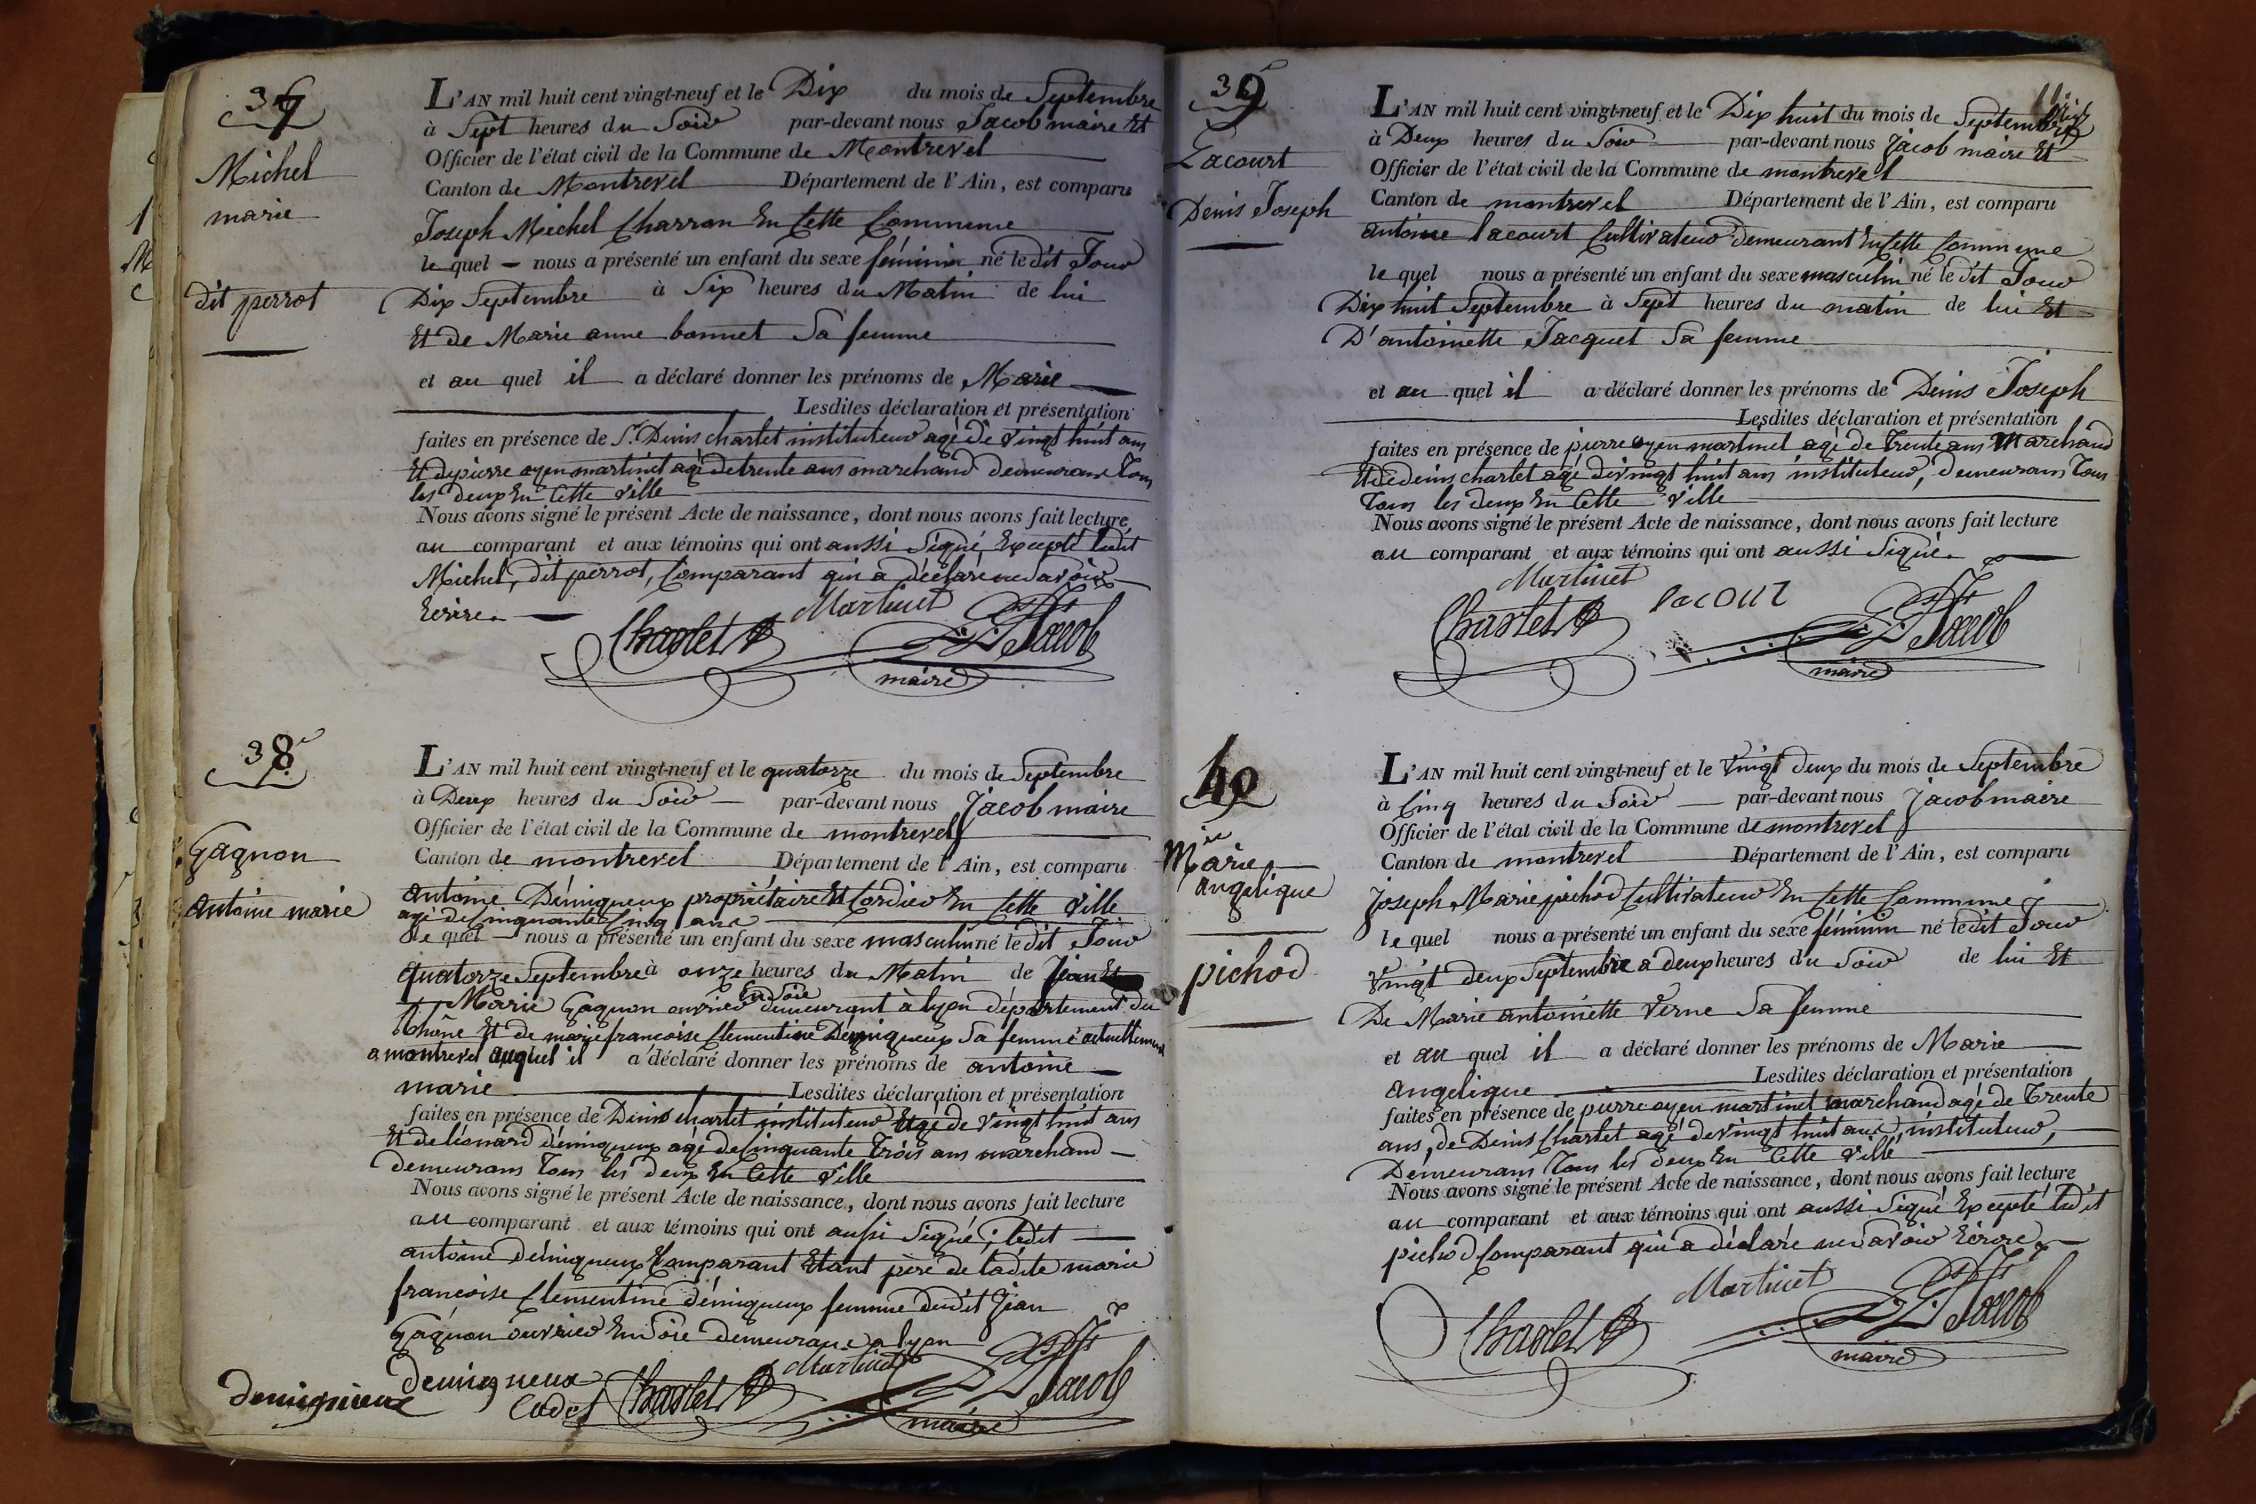 37
Michel
marie
dit perrot
L'AN mil huit cent vingt-neuf et le Dix du mois de Septembre
à Sept heures du Soir par-devant nous Jacob maire Et
Officier de l'état civil de la Commune de Montrevel
Canton de Montrevel Département de l'Ain, est comparu
Joseph Michel Charron En Cette Commune
le quel nous a présenté un enfant du sexe féminin né le dit Jour
Dix Septembre à Six heures du Matin de lui
Et de Marie anne bonnet Sa femme
et au quel il a déclaré donner les prénoms de Marie
Lesdites déclaration et présentation
faites en présence de Sr. Denis charlet instituteur agé de vingt huit ans
Et de pierre oyen martinet agé de trente ans marchand demeurans Tous
les deux En Cette ville
Nous avons signé le présent Acte de naissance, dont nous avons fait lecture
au comparant et aux témoins qui ont aussi Signé, Excepté ledit
Michel, dit perrot, Comparant qui a déclaré ne Savoir
Ecrire.
Charlet Martinet Jacob
maire
38e
Gagnon
antoine marie
L'AN mil huit cent vingt-neuf et le quatorze du mois de Septembre
à Deux heures du Soir par-devant nous Jacob maire
Officier de l'état civil de la Commune de montrevel
Canton de montrevel Département de l'Ain, est comparu
antoine Démigneux propriétaire Et Cordier En Cette ville
agé de Cinquante Cinq ans
le quel nous a présenté un enfant du sexe masculin né le dit Jour
quatorze Septembre à onze heures du Matin de Jean
Marie Gagnon ouvrier En Soie demeurant à lyon département du
Rhône Et de marie francoise Clementine Démigneux Sa femme actuellement
a montrevel auquel il a déclaré donner les prénoms de antoine
marie Lesdites déclaration et présentation
faites en présence de Denis charlet instituteur agé de vingt huit ans
Et de léonard démigneux agé de Cinquante Trois ans marchand
demeurans Tous les deux En Cette ville
Nous avons signé le présent Acte de naissance, dont nous avons fait lecture
au comparant et aux témoins qui ont aussi Signé; ledit
antoine démigneux Comparant Etant père de ladite marie
francoise Clémentine démigneux femme dudit Jean
Gagnon ouvrier En Soie demeurant a lyon
demigneux
demigneux Cadet Charlet Martinet Jacob
maire
39e
Lacourt
Denis Joseph
L'AN mil huit cent vingt-neuf et le Dix huit du mois de Septembre
à Deux heures du Soir par-devant nous Jacob maire Et
Officier de l'état civil de la Commune de montrevel
Canton de montrevel Département de l'Ain, est comparu
antoine lacourt Cultivateur demeurant En Cette Commune
le quel nous a présenté un enfant du sexe masculin né le dit Jour
Dix huit Septembre à Sept heures du matin de lui Et
D'antoinette Jacquet Sa femme
et au quel il a déclaré donner les prénoms de Denis Joseph
Lesdites déclaration et présentation
faites en présence de pierre oyen martinet agé de Trente ans Marchand
Et de denis charlet agé de vingt huit ans instituteur, demeurans Tous
Tous les deux En Cette ville
Nous avons signé le présent Acte de naissance, dont nous avons fait lecture
au comparant et aux témoins qui ont aussi Signé.
Martinet
Charlet lacout Jacob
maire
40
Marie
angelique
pichod
L'AN mil huit cent vingt-neuf et le vingt deux du mois de Septembre
à Cinq heures du Soir par-devant nous Jacob maire
Officier de l'état civil de la Commune de montrevel
Canton de montrevel Département de l'Ain, est comparu
joseph Marie pichod Cultivateur En Cette Commune
le quel nous a présenté un enfant du sexe féminin né le dit Jour
vingt deux Septembre a deux heures du Soir de lui Et
De Marie antoinette Verne Sa femme
et au quel il a déclaré donner les prénoms de Marie
angelique Lesdites déclaration et présentation
faites en présence de pierre oyen martinet marchand agé de Trente
ans, de Denis Charlet agé de vingt huit ans, instituteur,
Demeurans Tous les deux En Cette ville
Nous avons signé le présent Acte de naissance, dont nous avons fait lecture
au comparant et aux témoins qui ont aussi Signé Excepté ledit
pichod Comparant qui a déclaré ne Savoir Ecrire
Charlet Martinet Jacob
maire